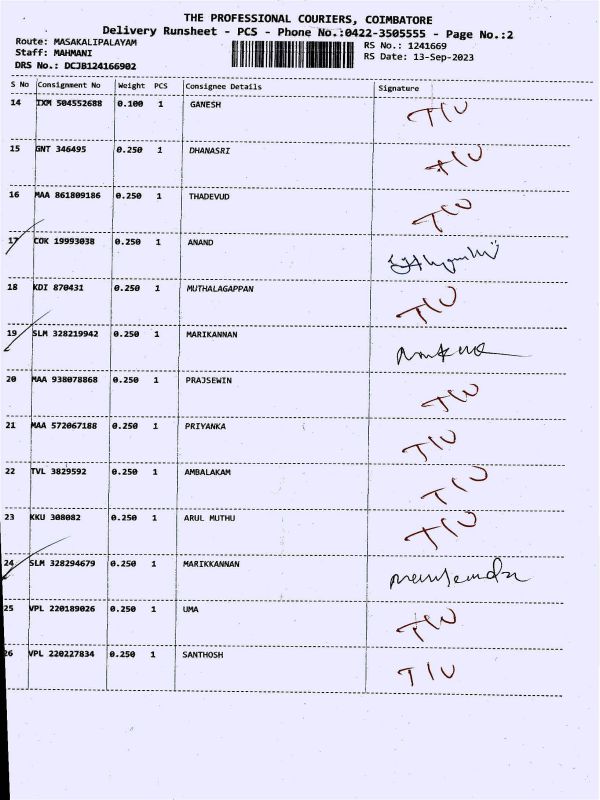 THE PROFESSIONAL COURIERS, COIMBATORE
Delivery Runsheet - PCS - Phone No.:0422-3505555 - Page No.:2
Route: MASAKALIPALAYAM
Staff: MAHMANI
DRS No.: DCJB124166902
RS No.: 1241669
RS Date: 13-Sep-2023
S No Consignment No Weight PCS Consignee Details Signature
14 IXM 504552688 0.100 1 GANESH TIU
15 GNT 346495 0.250 1 DHANASRI TIU
16 MAA 861809186 0.250 1 THADEVUD TIU
17 COK 19993038 0.250 1 ANAND
18 KDI 870431 0.250 1 MUTHALAGAPPAN TIU
19 SLM 328219942 0.250 1 MARIKANNAN
20 MAA 938078868 0.250 1 PRAJSEWIN TIU
21 MAA 572067188 0.250 1 PRIYANKA TIU
22 TVL 3829592 0.250 1 AMBALAKAM TIU
23 KKU 308082 0.250 1 ARUL MUTHU TIU
24 SLM 328294679 0.250 1 MARIKKANNAN
25 VPL 220189026 0.250 1 UMA TIU
26 VPL 220227834 0.250 1 SANTHOSH TIU